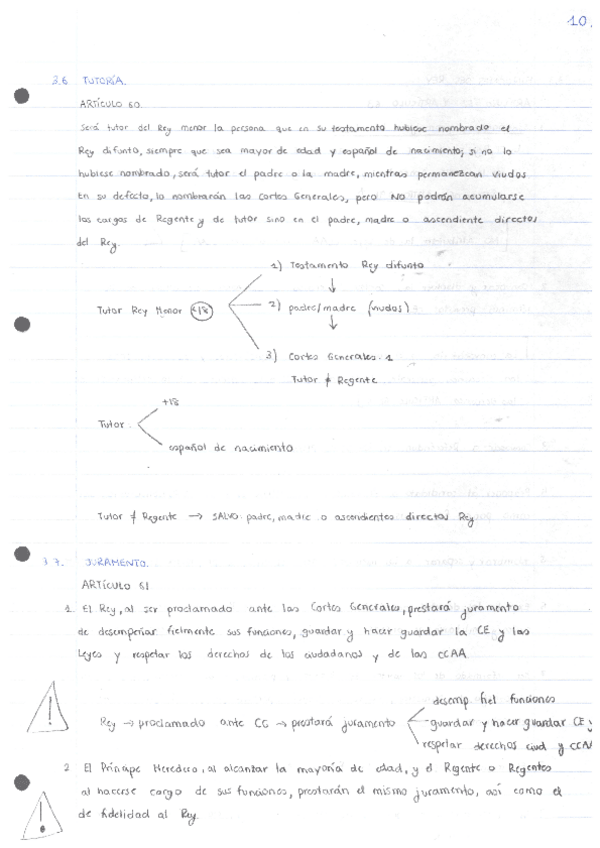 10.
3.6 TUTORÍA.
ARTÍCULO 60.
Será tutor del Rey menor la persona que en su testamento hubiese nombrado el
Rey difunto, siempre que sea mayor de edad y español de nacimiento; si no lo
hubiese nombrado, será tutor el padre o la madre, mientras permanezcan viudos
En su defecto, lo nombrarán las Cortes Generales, pero NO podrán acumularse
los cargos de Regente y de tutor sino en el padre, madre o ascendiente directos
del Rey.
1) Testamento Rey difunto
↓
Tutor Rey Menor <18 2) padre/madre (viudos)
↓
3) Cortes Generales.
Tutor ≠ Regente
+18
Tutor.
español de nacimiento
Tutor ≠ Regente → SALVO padre, madre o ascendientes directos Rey
3.7. JURAMENTO.
ARTÍCULO 61
1. El Rey, al ser proclamado ante las Cortes Generales, prestará juramento
de desempeñar fielmente sus funciones, guardar y hacer guardar la CE y las
Leyes y respetar los derechos de los ciudadanos y de las CCAA
desemp fiel funciones
Rey → proclamado ante CG → prestará juramento guardar y hacer guardar CE y
respetar derechos ciud y CCAA
2 El Príncipe Heredero, al alcanzar la mayoría de edad, y el Regente o Regentes
al hacerse cargo de sus funciones, prestarán el mismo juramento, así como el
de fidelidad al Rey.